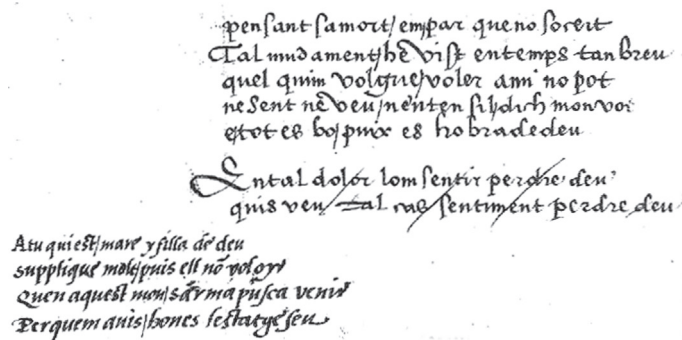 pensant sa mort/ empar que no so cert
Tal mudament/ he vist en temps tan breu
quel quim volgue/ voler ami no pot
ne sent ne veu/ nenten sili dich mon vot
e tot es bo/ puix es ho bra de deu
En tal dolor lom sentir perdre deu
quis veu tal cas sentiment perdre deu
A tu qui est/ mare y filla de deu
supplique molt/ puis ell nom vol oyr
Quen aquest mon/ sarma pusca venir
Perquem auis/ hon es lestatge seu